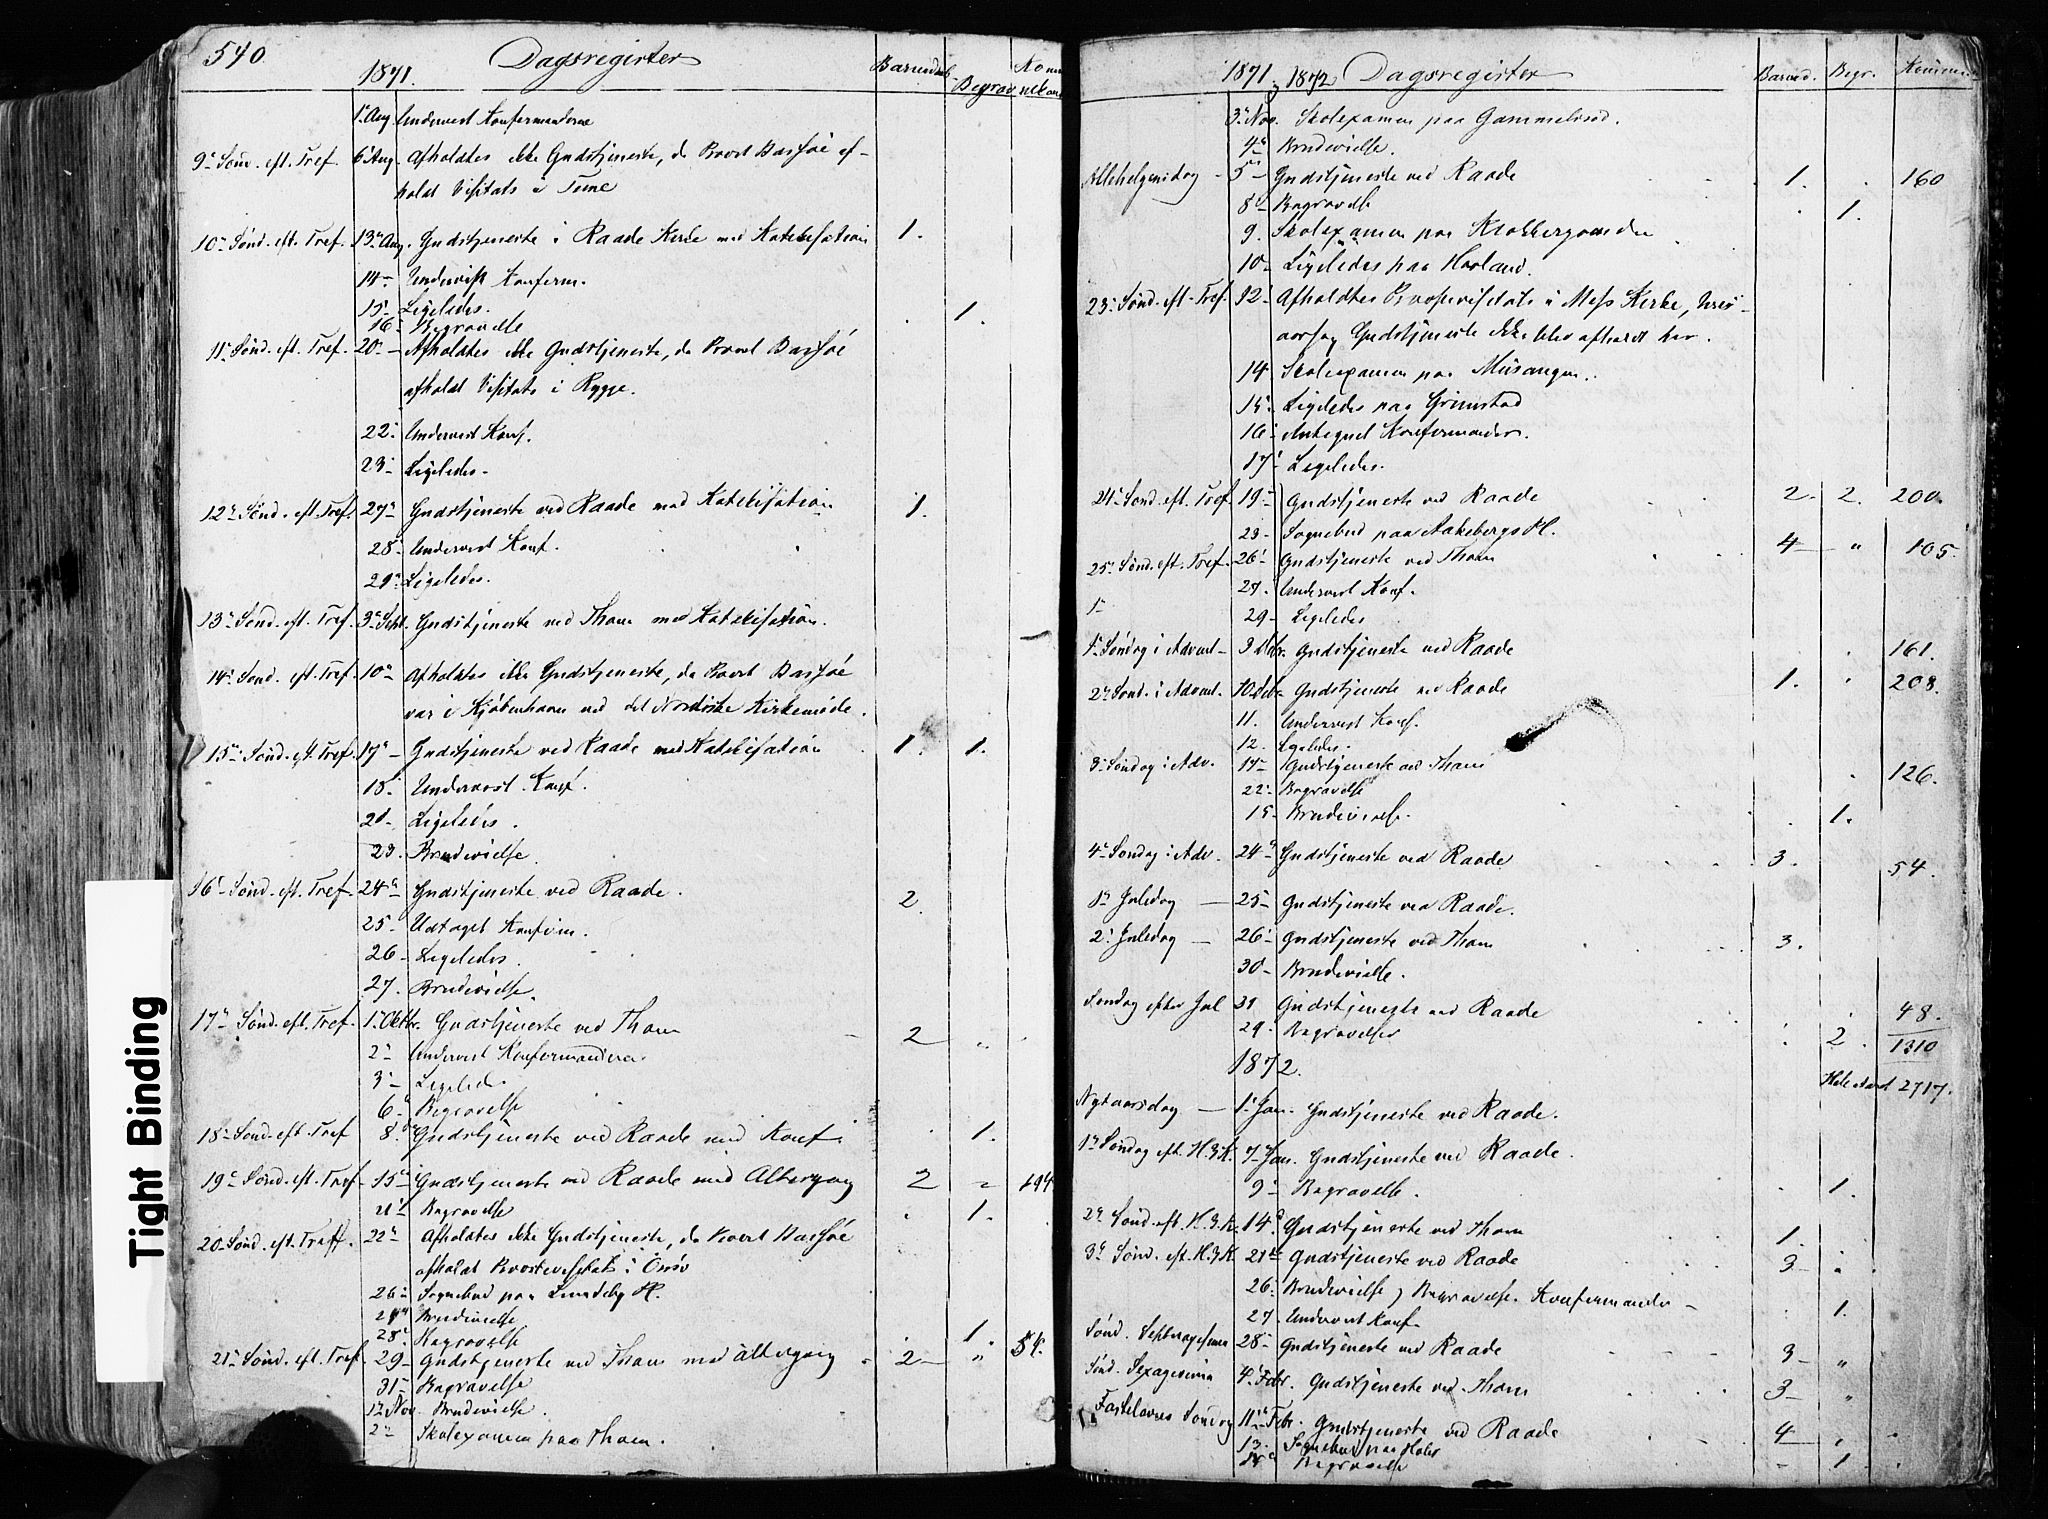 540
1871. Dagsregister
Barnedaab Begrav Kommunikan
1ste Aug. Undervist Konfirmanderne
9de Sønd. eft. Tref. 6te Aug. Afholdtes ikke Gudstjeneste, da Provst Barsøe af-
holdt Visitats i Tune
10de Sønd. eft. Tref. 13de Aug. Gudstjeneste i Raade Kirke med Katekisation 1.
14- Undervist Konfirm.
15- Ligeledes.
16- Begravelse 1.
11te Sønd. eft. Tref. 20- Afholdtes ikke Gudstjeneste, da Provst
afholdt Visitats i Rygge.
22- Undervist Konf.
23- Ligeledes.
12te Sønd. eft. Tref. 27de Gudstjeneste ved Raade med Katekisation 1.
28- Undervist Konf.
29- Ligeledes.
13de Sønd. eft. Tref. 3die Sept. Gudstjeneste ved Thom med Katekisation.
14de Sønd. eft. Tref. 10de Afholdtes ikke Gudstjeneste, da Provst
var i Kjøbenhavn ved det Nordiske Kirkemøde.
15de Sønd. eft. Tref. 17de Gudstjeneste ved Raade med Katekisation 1. 1.
18- Undervist Konf.
21- Ligeledes.
23. Brudevielse.
16de Sønd. eft. Tref. 24de Gudstjeneste ved Raade. 2.
25- Udtaget Konfirm.
26- Ligeledes.
27. Brudevielse.
17de Sønd. eft. Tref. 1ste Oktbr. Gudstjeneste ved Thom 2 "
2- Undervist Konfirmanderne.
3- Ligeled.
6- Begravelse
18- Sønd. eft. Tref 8de Gudstjeneste ved Raade med Konf. 1.
19de Sønd. eft. Tref. 15de Gudstjeneste ved Raade med Altergang 2 " 194
21- Begravelse 1.
20- Sønd. eft. Treff. 22de Afholdtes ikke Gudstjeneste, da Provst
afholdt Provstevisitats i Onsø
26- Sognebud paa Lundeby
27- Brudevielse
28- Begravelse 1.
21de Sønd. eft. Tref. 29- Gudstjeneste ved Thom med Altergang 2- " 54.
31- Begravelse
1ste Nov. Brudevielse.
2- Skoleexamen paa Thom.
1871 1872 Dagsregister
Barned. Begr. Kommun
3- Nov. Skoleexamen paa Gammelsrød.
4de Brudevielse.
Allehelgensdag - 5- Gudstjeneste ved Raade 1. 160
8- Begravelse 1.
9. Skoleexamen paa
10- Ligeledes paa Haaland.
23- Sønd. eft. Tref. 12- Afholdtes Provstevisitats i Moss Kirke, hves
aarsag Gudstjeneste ikke blev afholdt her.
14 Skoleexamen paa
15- Ligeledes paa Grimstad
16- Antegnet Konfirmander.
17- Ligeledes.
24- Sønd. eft. Tref. 19- Gudstjeneste ved Raade 2. 2. 200
23- Sognebud paa
25- Sønd. eft. Tref. 26- Gudstjeneste ved Thom 4- " 105.
27. Undervist Konf.
1-
29- Ligeledes
1ste Søndag i Advent- 3 Debr. Gudstjeneste ved Raade 161.
2de Sønd. i Advent. 10. Debr Gudstjeneste ved Raade 1. 208.
11. Undervist Konf.
12. Ligeledes.
3- Søndag i Adv. 17- Gudstjeneste ved Thom 126.
22- Begravelse
15- Brudevielse. 1.
4- Søndag i Adv. 24de Gudstjeneste ved Raade 3. 54.
1ste Juledag - 25- Gudstjeneste ved Raade.
2- Juledag - 26- Gudstjeneste ved Thom 3.
30- Brudevielse.
Søndag efter Jul 31 Gudstjeneste ved Raade 48.
29- Begravelser 2. 1310
1872. Hele Aaret 2717.
Nytaarsdag - 1- Jan. Gudstjeneste ved Raade.
1ste Søndag eft. H.3.K. 7- Jan. Gudstjeneste ved Raade.
9- Begravelse. 1.
2de Sønd. eft. H.3.K. 14de Gudstjeneste ved Thom 1.
3de Sønd. eft. H.3.K 21de Gudstjeneste ved Raade 3- "
26- Brudevielse, Begravelse. Konfirmander - 1.
27. Undervist Konf.
Sønd. Septuagesima 28- Gudstjeneste ved Raade 3- "
Sønd. Sexagesima 4- Febr. Gudstjeneste ved Thom 3- "
Fastelavns Søndag 11te Febr. Gudstjeneste ved Raade 4- "
13. Sognebud paa
Begravelse 1.
Tight Binding